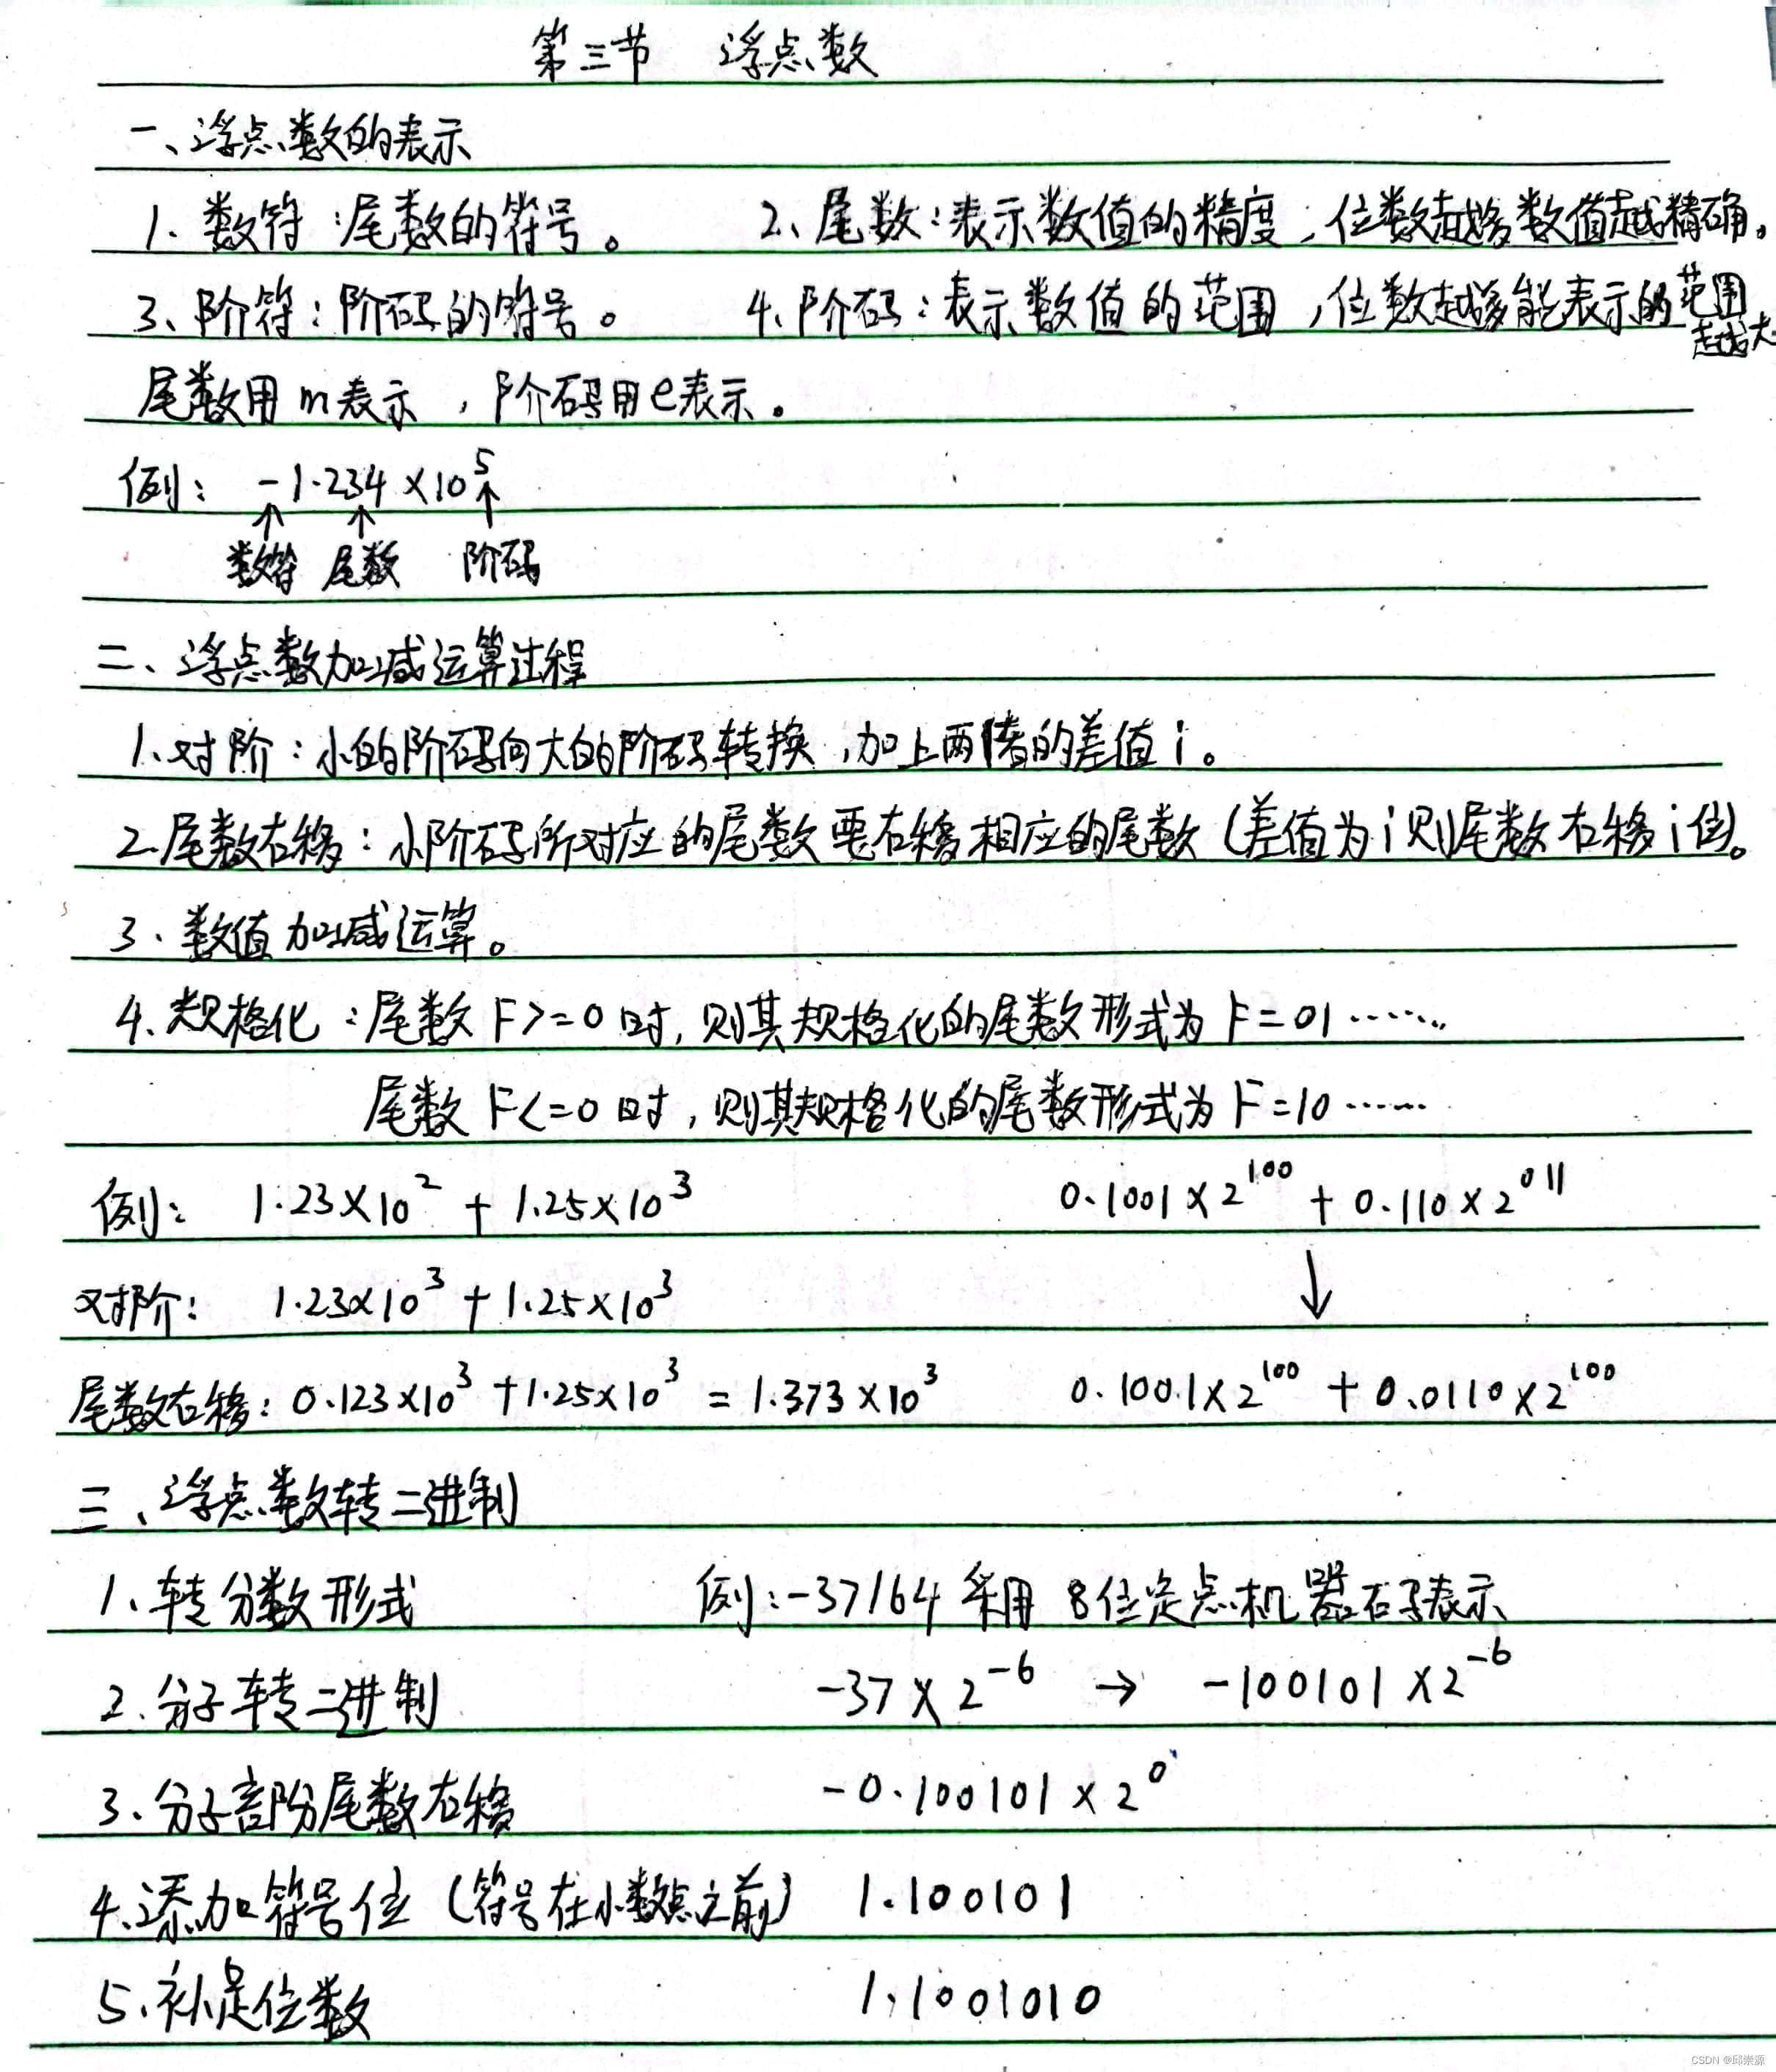 第三节 浮点数
一、浮点数的表示
1、数符:尾数的符号。 2、尾数:表示数值的精度,位数越多数值越精确。
3、阶符:阶码的符号。 4、阶码:表示数值的范围,位数越多能表示的范围越大
尾数用m表示,阶码用e表示。
例: -1.234×10⁵
数符 尾数 阶码
二、浮点数加减运算过程
1、对阶:小的阶码向大的阶码转换,加上两者的差值i。
2、尾数右移:小阶码所对应的尾数要右移相应的尾数(差值为i则尾数右移i位)。
3、数值加减运算。
4、规格化:尾数F>=0时,则其规格化的尾数形式为F=01······
尾数F<=0时,则其规格化的尾数形式为F=10······
例: 1.23×10² + 1.25×10³ 0.1001×2¹⁰⁰ + 0.110×2⁰¹¹
对阶: 1.23×10³ + 1.25×10³ ↓
尾数右移: 0.123×10³ + 1.25×10³ = 1.373×10³ 0.1001×2¹⁰⁰ + 0.0110×2¹⁰⁰
三、浮点数转二进制
1、转分数形式 例:-37/64 采用8位定点机器码表示
2、分子转二进制 -37×2⁻⁶ → -100101×2⁻⁶
3、分子部分尾数右移 -0.100101×2⁰
4、添加符号位(符号在小数点之前) 1.100101
5、补足位数 1.1001010
CSDN @邱崇源